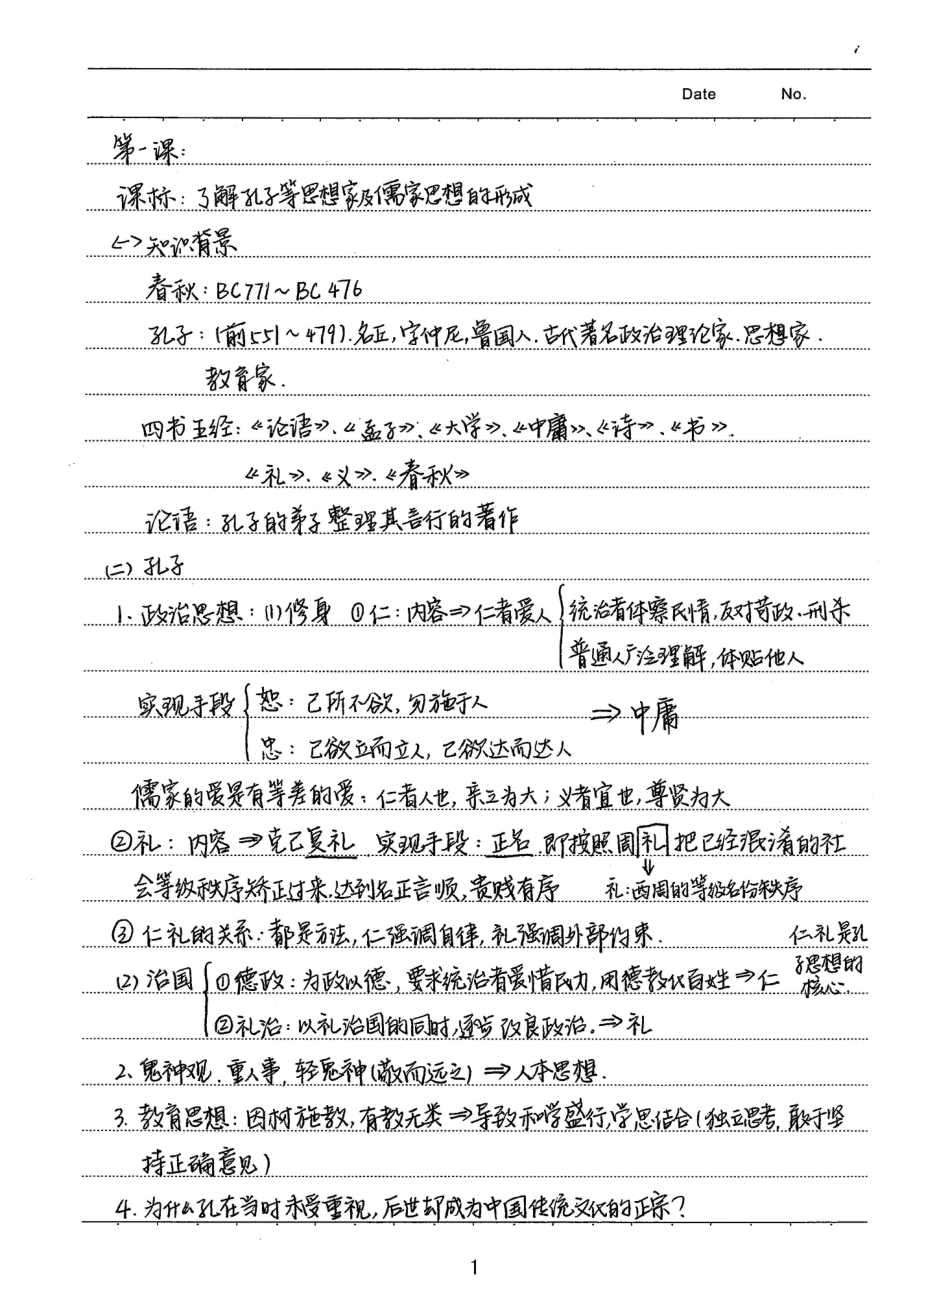 Date No.
第一课:
课标：了解孔子等思想家及儒家思想的形成
<一>知识背景
春秋：BC771～BC 476
孔子：(前551～479).名丘,字仲尼,鲁国人.古代著名政治理论家.思想家.
教育家.
四书五经：《论语》、《孟子》、《大学》、《中庸》、《诗》、《书》、
《礼》、《义》、《春秋》
论语：孔子的弟子整理其言行的著作
(二) 孔子
1. 政治思想：(1)修身 ①仁：内容⇒仁者爱人 { 统治者体察民情,反对苛政、刑杀
普通人广泛理解,体贴他人
实现手段 { 恕：己所不欲,勿施于人 ⇒中庸
忠：己欲立而立人,己欲达而达人
儒家的爱是有等差的爱：仁者人也,亲之为大；义者宜也,尊贤为大
②礼：内容⇒克己复礼 实现手段：正名.即按照周礼把已经混淆的社
会等级秩序矫正过来.达到名正言顺,贵贱有序 礼:西周的等级名份秩序
③ 仁礼的关系：都是方法,仁强调自律,礼强调外部约束. 仁礼是孔
子思想的
核心.
(2) 治国 { ①德政：为政以德,要求统治者爱惜民力,用德教化百姓⇒仁
②礼治：以礼治国的同时,逐步改良政治.⇒礼
2、鬼神观.重人事,轻鬼神(敬而远之)⇒人本思想.
3. 教育思想：因材施教,有教无类⇒导致私学盛行,学思结合(独立思考,敢于坚
持正确意见)
4. 为什么孔在当时未受重视,后世却成为中国传统文化的正宗?
1